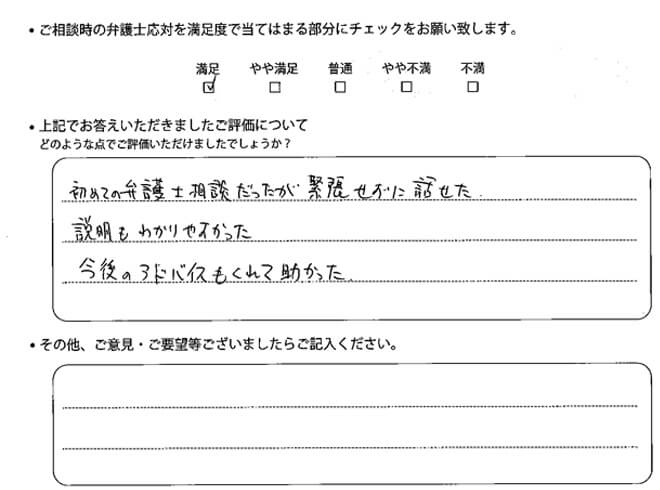 ・ご相談時の弁護士応対を満足度で当てはまる部分にチェックをお願い致します。
満足 やや満足 普通 やや不満 不満
☑ □ □ □ □
・上記でお答えいただきましたご評価について
どのような点でご評価いただけましたでしょうか?
初めての弁護士相談だったが緊張せずに話せた.
説明もわかりやすかった
今後のアドバイスもくれて助かった.
・その他、ご意見・ご要望等ございましたらご記入ください。